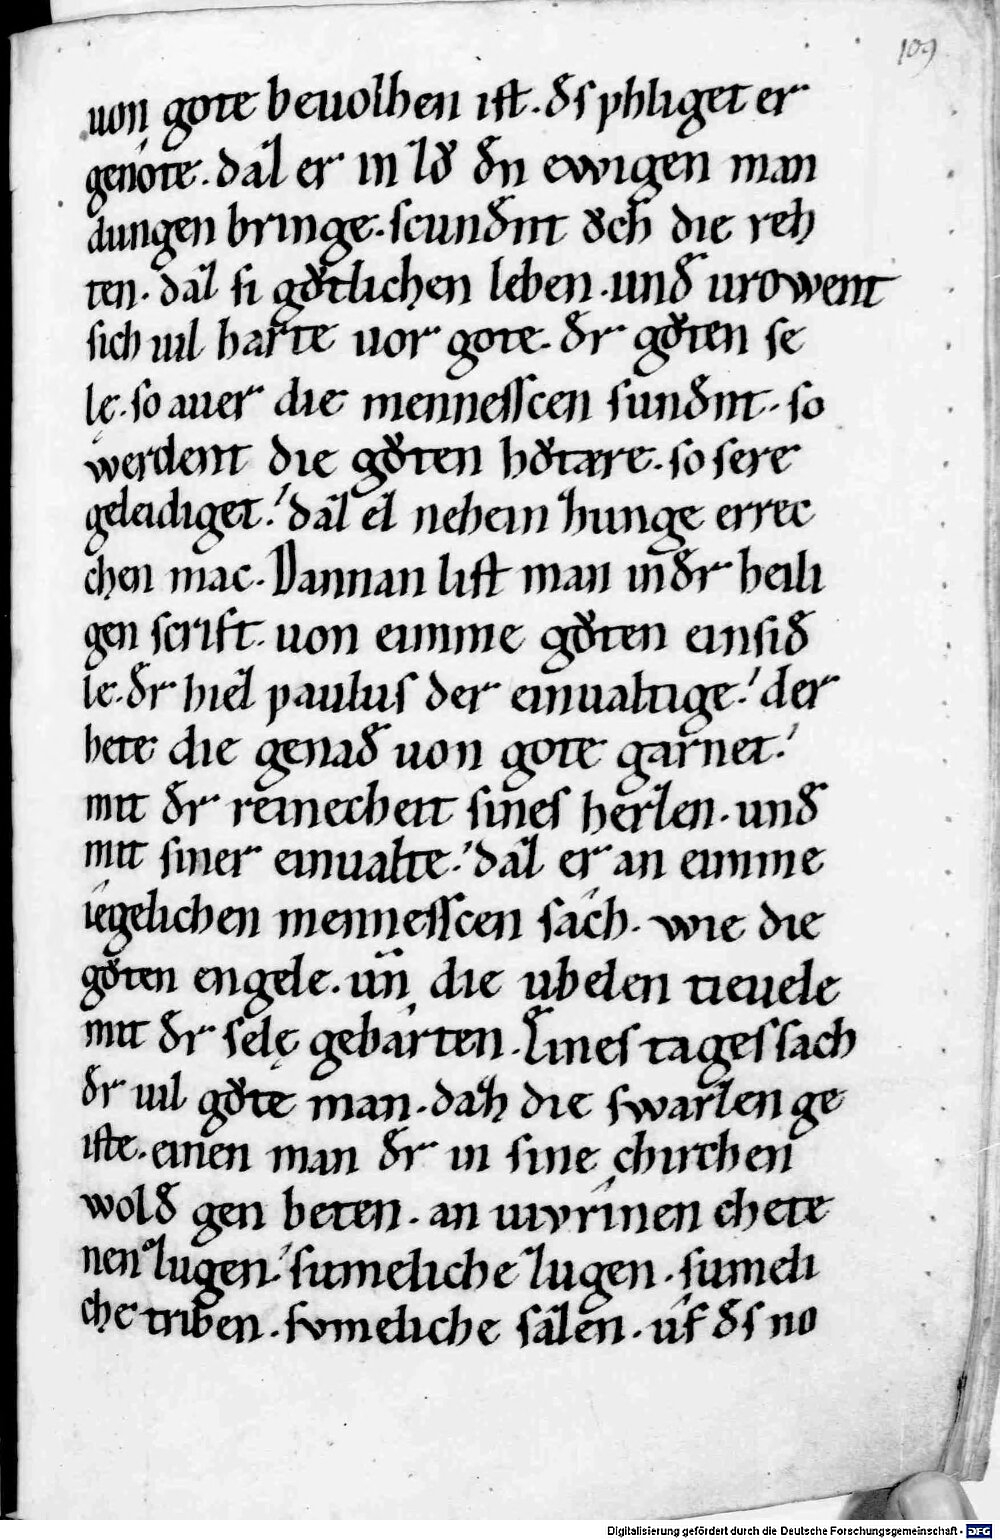 109
uon gote beuolhen ist. đs phliget er
genote. daz er in zů đn ewigen man
dungen bringe. scunđnt ŏch die reh
ten. daz si gǒtlichen leben. unđ urowent
sich uil harte uor gote. đr gǒten se
lę. so auer die mennesscen sunđnt. so
werdent die gǒten hǒtære. so sere
geleidiget. daz ez nehein zhunge errec
chen mac. Dannan list man in đr heili
gen scrift. uon einime gǒten einsiđ
le. đr hiez paulus der einualtige. der
hete die genađ uon gote garnet.
mit đr reinecheit sines herzen. unđ
mit siner einualte. daz er an einime
iegelichen mennesscen sach. wie die
gǒten engele. un̄ die ubelen tieuele
mit đr selę gebarten. Eines tages sach
đr uil gǒte man. dazh die swarzen ge
iste. einen man đr in sine chirchen
wolđ gen beten. an uivrinen chete
nen zugen. sumeliche zugen. sumeli
che triben. svmeliche sazen. uf đs no
Digitalisierung gefördert durch die Deutsche Forschungsgemeinschaft - DFG